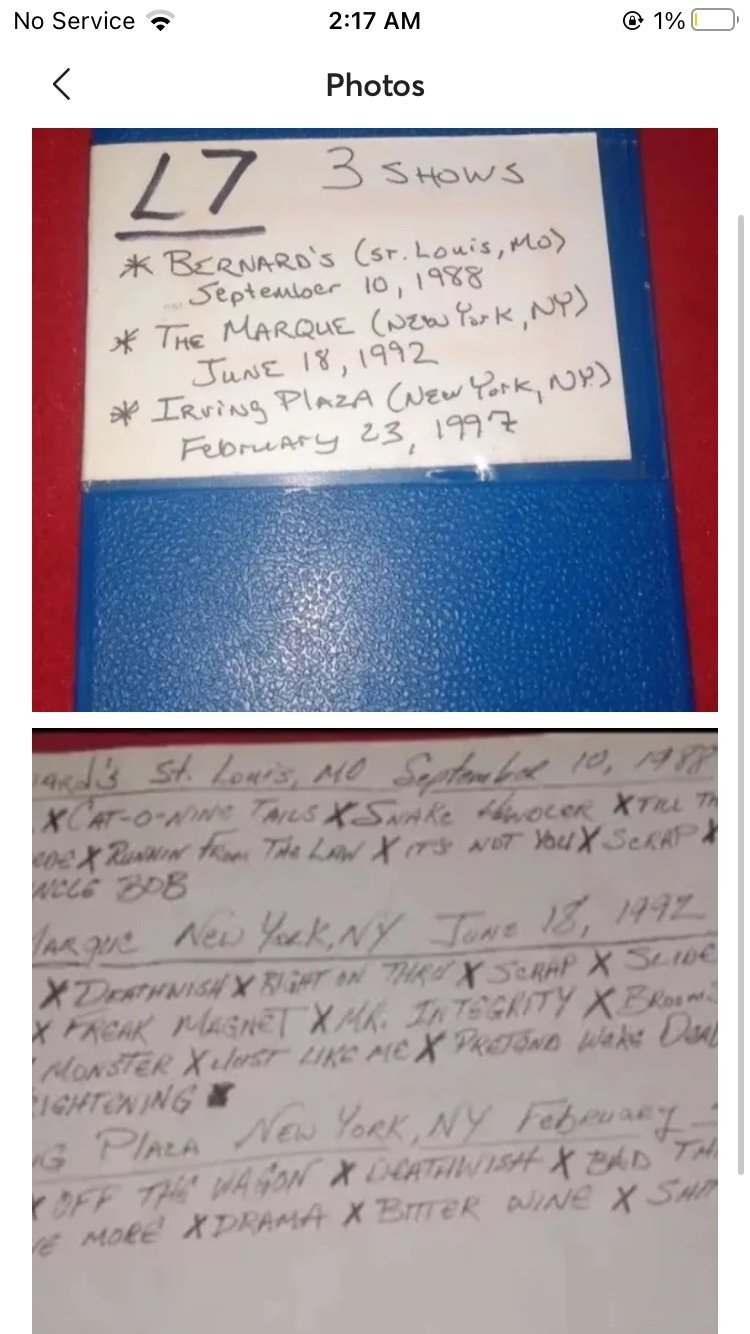 No Service 2:17 AM 1%
Photos
L7 3 SHOWS
* BERNARD'S (ST. Louis, MO)
September 10, 1988
* THE MARQUE (NEW York, NY)
JUNE 18, 1992
* IRVING PLAZA (NEW York, NY)
February 23, 1997
ard's St. Louis, MO September 10, 1988
X CAT-O-NINE TAILS X SNAKE HANDLER X TILL TH
X RUNNIN FROM THE LAW X IT'S NOT YOU X SCRAP X
NCLE BOB
Marque New York, NY June 18, 1992
X DEATHWISH X RIGHT ON THRU X SCRAP X SLIDE
X FREAK MAGNET X MR. INTEGRITY X BROOMS
MONSTER X JUST LIKE ME X PRETEND WE'RE DEAD
IGHTENING X
G PLAZA New York, NY February
X OFF THE WAGON X DEATHWISH X BAD TH
E MORE X DRAMA X BITTER WINE X